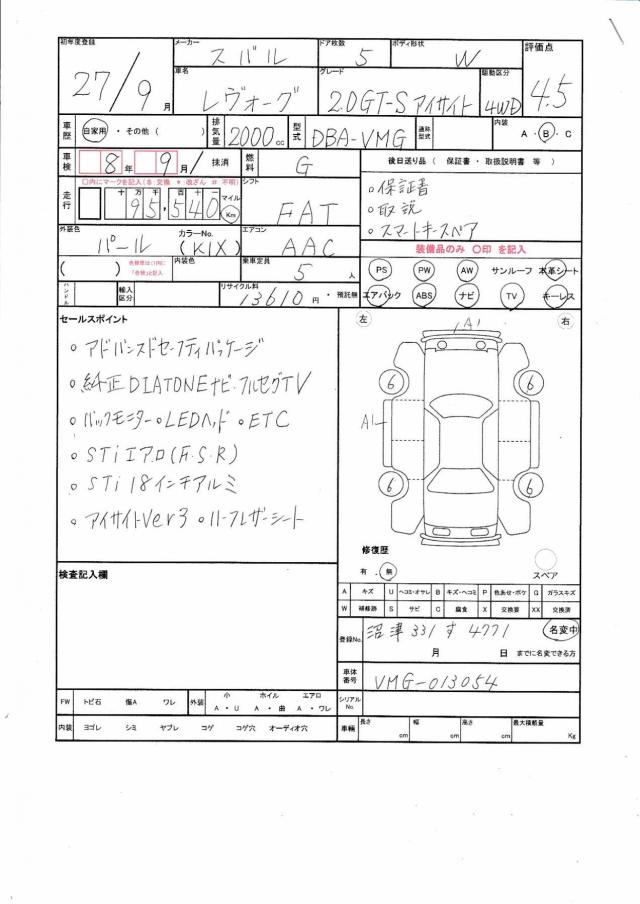 初年度登録 メーカー スバル ドア枚数 5 ボディ形状 W 評価点
27/9月 車名 レヴォーグ グレード 2.0GT-S アイサイト 駆動区分 4WD 4.5
車歴 自家用・その他( ) 排気量 2000cc 型式 DBA-VMG 通称型式 内装 A・B・C
車検 8年 9月/ 抹消 燃料 G 後日送り品 ( 保証書・取扱説明書 等 )
走行 □内にマークを記入(各:交換 *:改ざん #:不明) シフト
十 万 千 百 十 マイル
95,540 Km FAT
○保証書
○取説
○スマートキースペア
外装色 パール カラーNo. (K1X) エアコン AAC
装備品のみ ○印 を記入
( ) 内装色 乗車定員 5人
PS PW AW サンルーフ 本革シート
ハンドル 輸入区分 リサイクル料 13610円・預託無
エアバック ABS ナビ TV キーレス
セールスポイント
○アドバンスドセーフティパッケージ
○純正DIATONEナビ・フルセグTV
○バックモニター○LEDヘッド○ETC
○STiエアロ(F.S.R)
○STi 18インチアルミ
○アイサイトVer3 ○ハーフレザーシート
左 右
A1
6 6
A1
6 6
修復歴
有・無 スペア
検査記入欄
A キズ U ヘコミ・オサレ B キズ・ヘコミ P 色あせ・ボケ G ガラスキズ
W 補修跡 S サビ C 腐食 X 交換要 XX 交換済
登録No. 沼津 331 す 4771 名変中
月 日 までに名変できる方
車体番号 VMG-013054
シリアルNo.
FW トビ石 傷A ワレ 外装 小 ホイル エアロ
A・U A・曲 A・ワレ
内装 ヨゴレ シミ ヤブレ コゲ コゲ穴 オーディオ穴
車輌 長さ cm 幅 cm 高さ cm 最大積載量 Kg